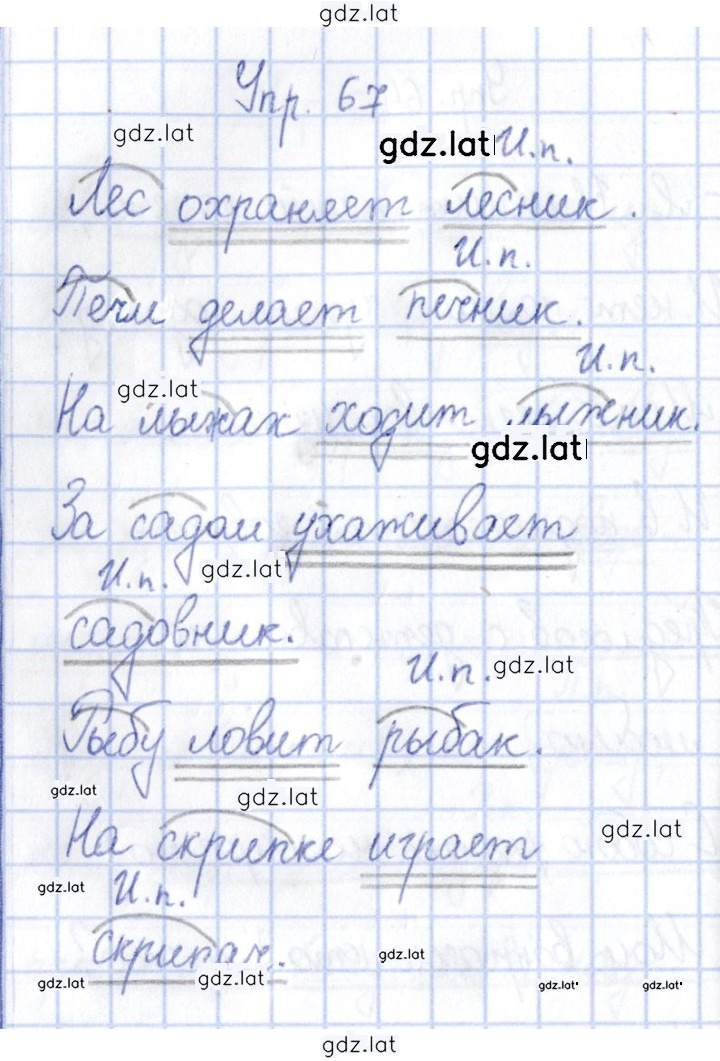 gdz.lat
Упр. 67
gdz.lat gdz.lat И.п.
Лес охраняет лесник.
И.п.
Печи делает печник.
И.п.
gdz.lat
На лыжах ходит лыжник.
gdz.lat
За садом ухаживает
И.п. gdz.lat
садовник.
И.п. gdz.lat
Рыбу ловит рыбак.
gdz.lat gdz.lat
На скрипке играет gdz.lat
gdz.lat И.п.
скрипач. gdz.lat
gdz.lat gdz.lat gdz.lat gdz.lat
gdz.lat